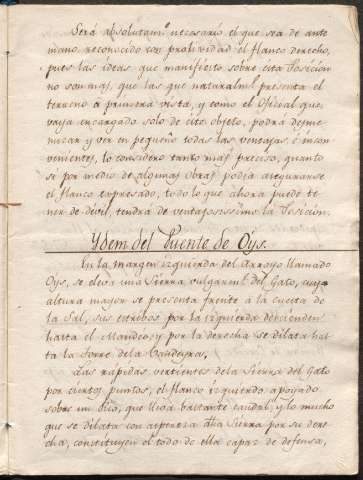 Será absolutam.te necesario el que sea de ante
mano reconocido con prolixidad el flanco derecho,
pues las ideas que manifiesto sobre esta Posicion
no son mas, que las que naturalm.te presenta el
terreno á primera vista, y como el Oficial que
vaya encargado solo de este objeto, podrá desme-
nuzar y ver en pequeño todas las ventajas é incon-
venientes, lo considero tanto mas preciso, quanto
si por medio de algunas obras podia asegurarse
el flanco expresado, todo lo que ahora puede te-
ner de devil, tendrá de ventajosissimo la Posicion.
Ydem del Puente de Oys.
En la margen izquierda del Arroyo llamado
Oys, se eleva una Sierra vulgarm.te del Gato, cuya
altura mayor se presenta frente á la cuesta de
la Sal, sus estrebos por la izquierda descienden
hasta el Mandeo, y por la derecha se dilata has-
ta la Torre dela
Las rapidas vertientes dela Sierra del Gato
por ciertos puntos, el flanco izquierdo apoyado
sobre un Rio, que lleva bastante caudal, y lo mucho
que se dilata con aspereza dha Sierra por su dere-
cha, constituyen el todo de ella capaz de defensa,